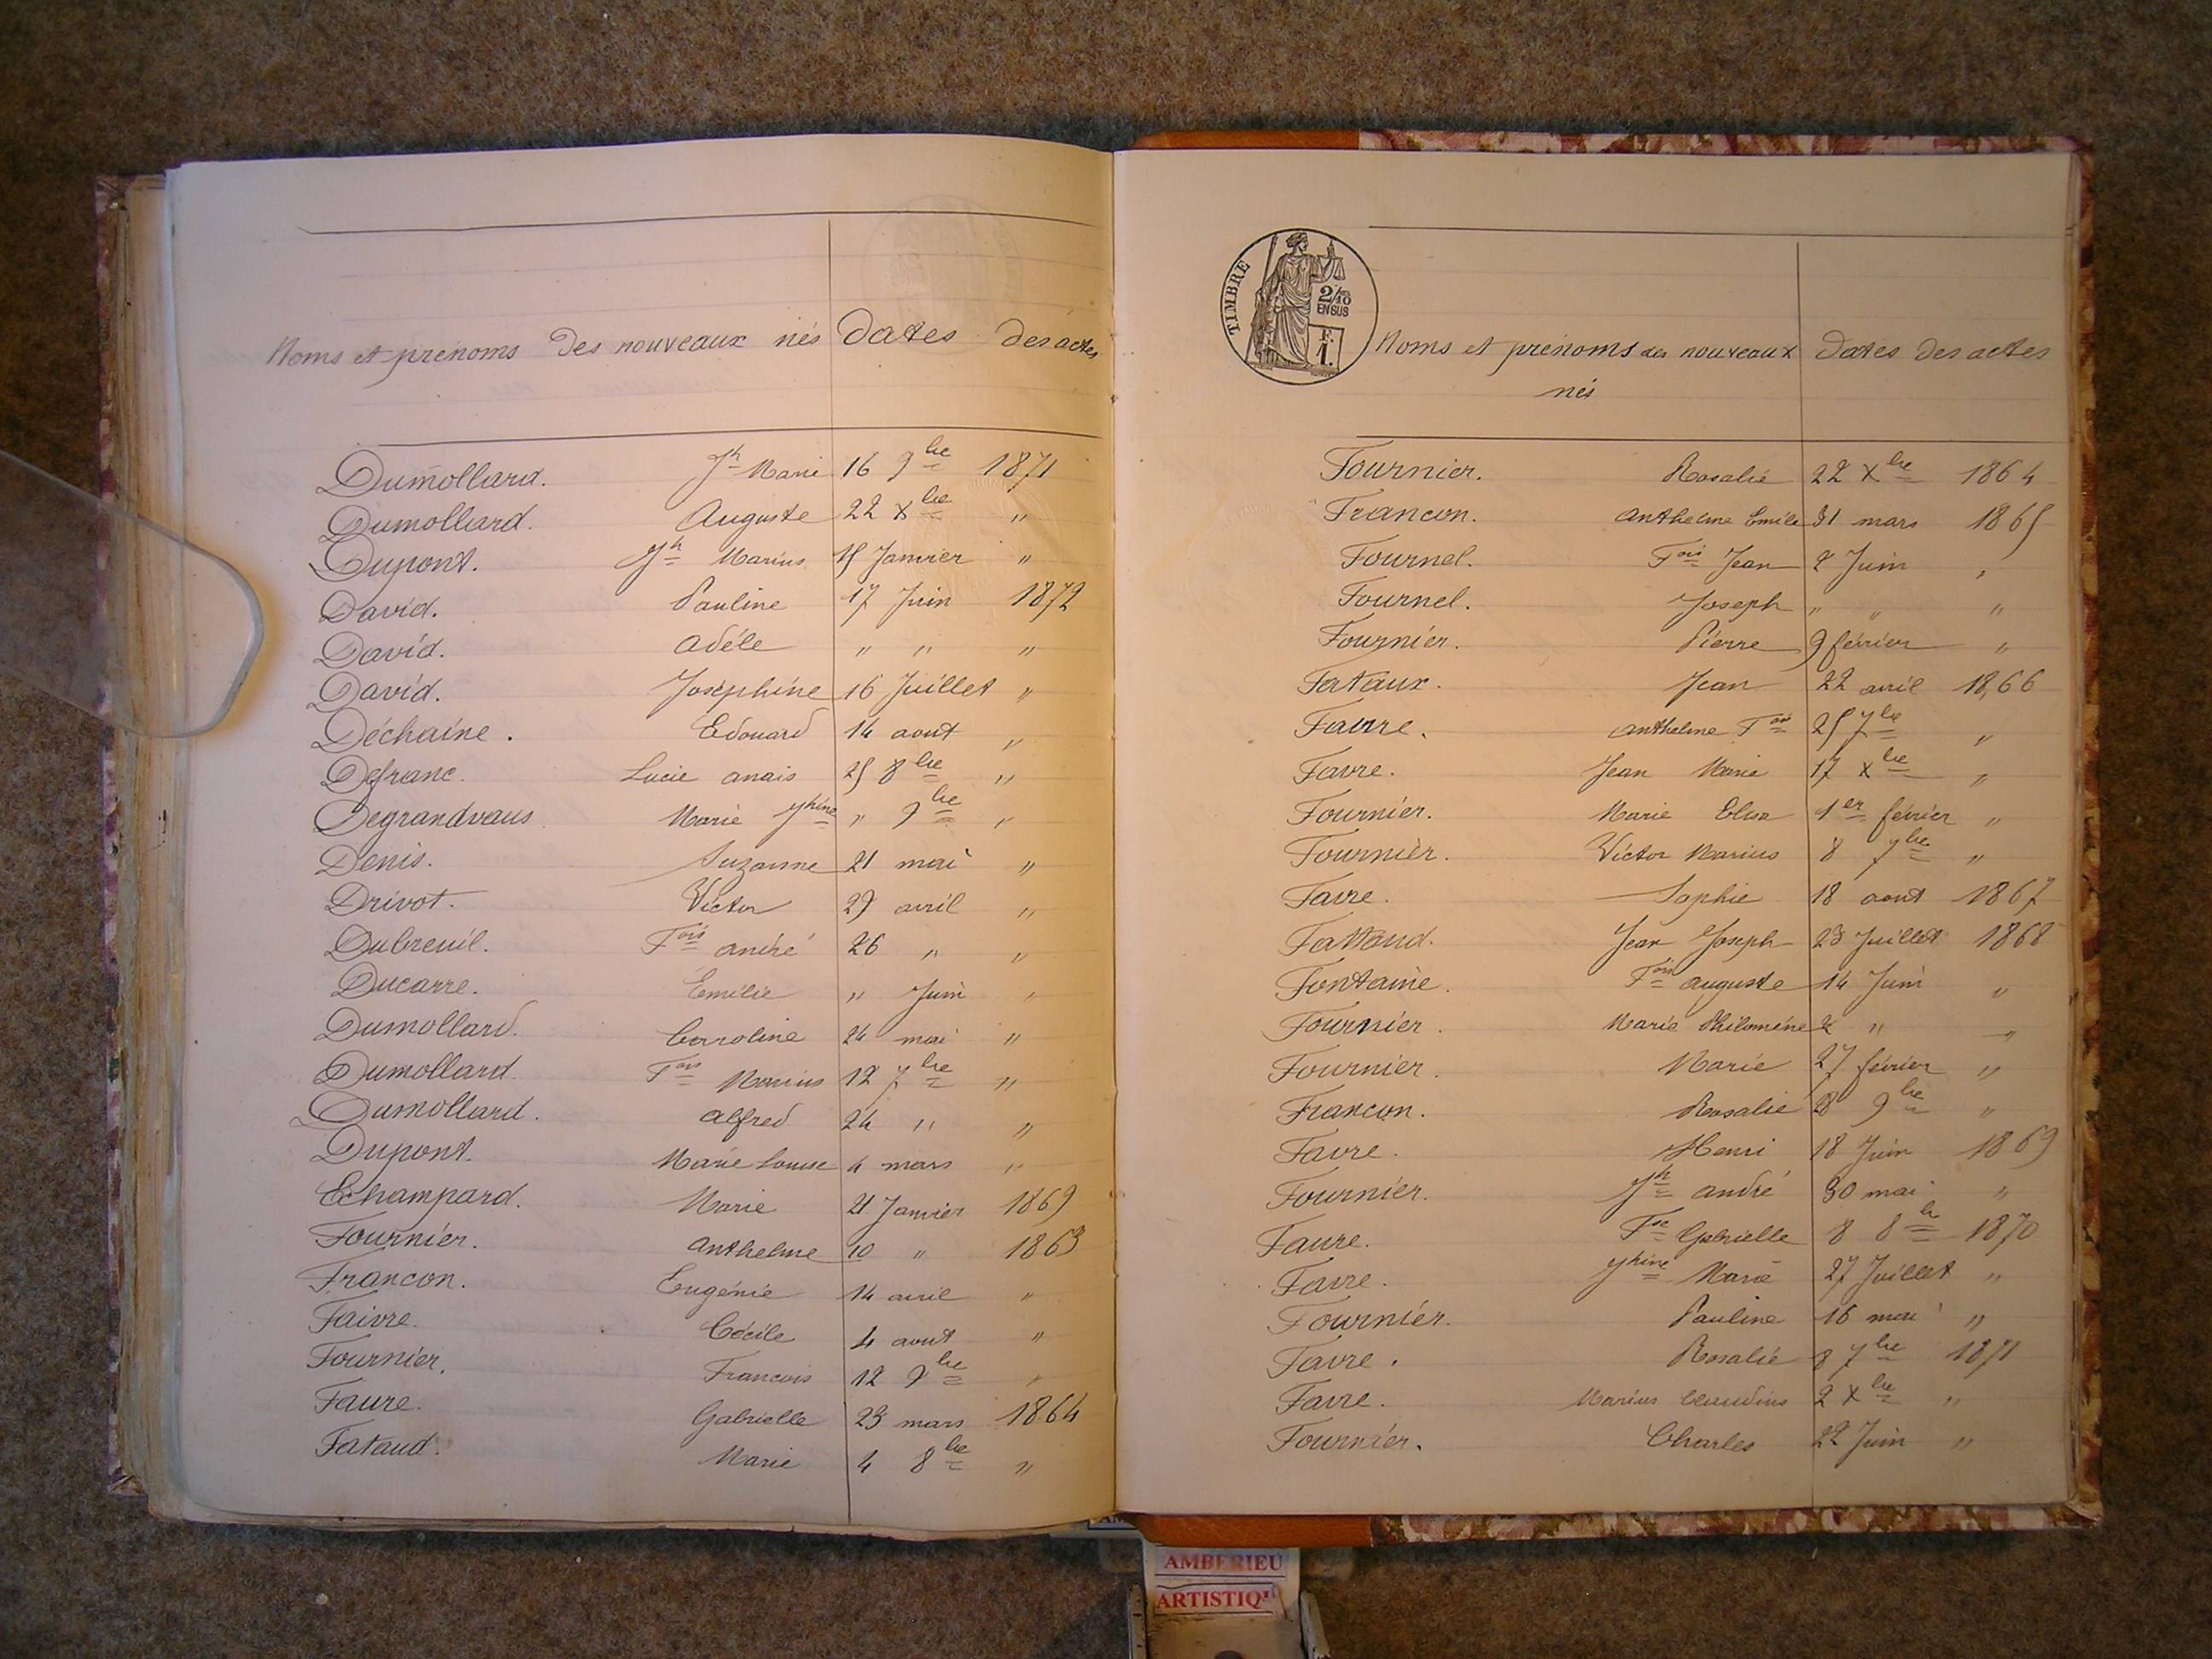 Noms et prénoms Des nouveaux nés Dates des actes
Dumollard. Jh Marie 16 9bre 1871
Dumollard. Auguste 22 Xbre "
Dupont. Jh Marius 15 Janvier "
David. Pauline 17 Juin 1872
David. Adéle " " "
David. Joséphine 16 Juillet "
Déchaine. Edouard 14 aout "
Defranc. Lucie anais 25 8bre "
Degrandvaus Marie Jhine " 9bre "
Denis. Suzanne 21 mai "
Drivot. Victor 29 avril "
Dubreuil. Fois andré 26 " "
Ducarre. Emilie " Juin "
Dumollard. Caroline 24 mai "
Dumollard. Fois Marius 12 7bre "
Dumollard. alfred 24 " "
Dupont. Marie Louise 4 mars "
Echampard. Marie 21 Janvier 1869
Fournier. anthelme 10 " 1863
Francon. Eugénie 14 avril "
Faivre. Cécile 4 aout "
Fournier. Francois 12 9bre "
Faure. Gabrielle 23 mars 1864
Fataud. Marie 4 8bre "
TIMBRE
2/10
EN SUS
F.
1.
Noms et prénoms des nouveaux Dates Des actes
nés
Fournier. Rosalie 22 Xbre 1864
Francon. Anthelme Emile 31 mars 1865
Fournel. Fois Jean 2 Juin "
Fournel. Joseph " " "
Fournier. Pierre 9 février "
Fataux. Jean 22 avril 1866
Favre. anthelme Fois 25 7bre "
Favre. Jean Marie 17 Xbre "
Fournier. Marie Elisa 1er février "
Fournier. Victor Marius 8 7bre "
Favre. Sophie 18 aout 1867
Fattaud. Jean Joseph 23 Juillet 1868
Fontaine. Fois auguste 14 Juin "
Fournier. Marie Philoméne 2 " "
Fournier. Marie 27 février "
Francon. Rosalie 28 9bre "
Favre. Henri 18 Juin 1869
Fournier. Jh andré 30 mai "
Faure. Fse Gabrielle 8 8bre 1870
Favre. Jhine Marie 27 Juillet "
Fournier. Pauline 16 mai "
Favre. Rosalie 8 7bre 1871
Favre. Marius Claudius 2 Xbre "
Fournier. Charles 22 Juin "
AMBERIEU
ARTISTIQU